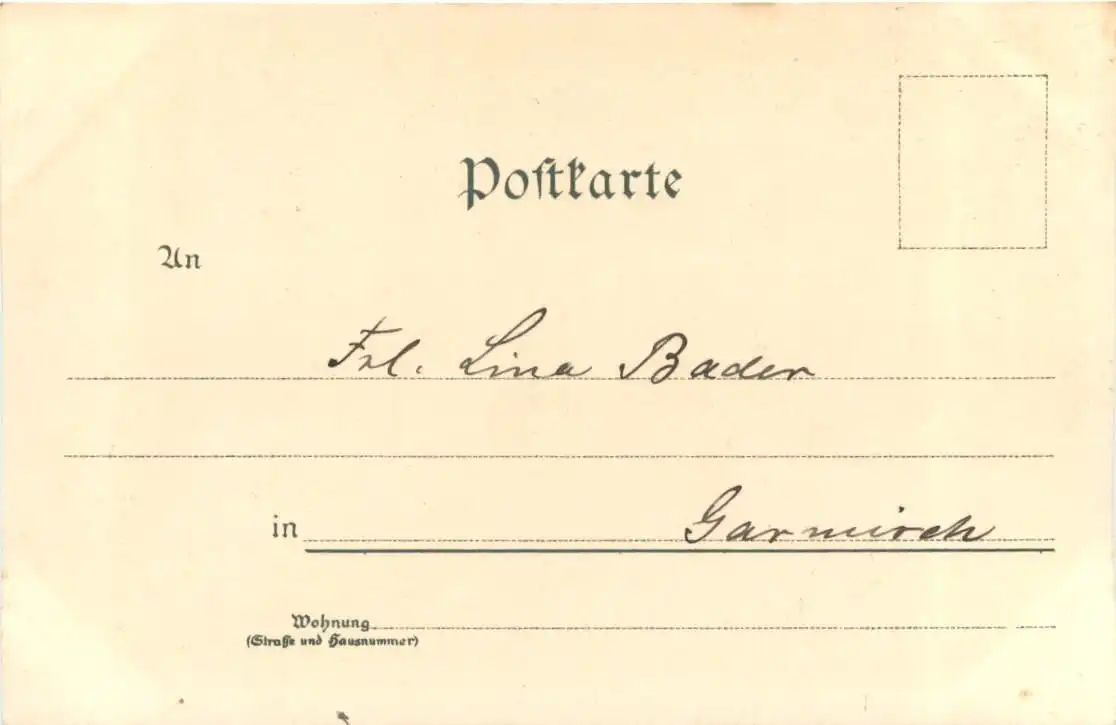 Postkarte
An
Frl. Lina Bader
in Garmisch
Wohnung
(Straße und Hausnummer)